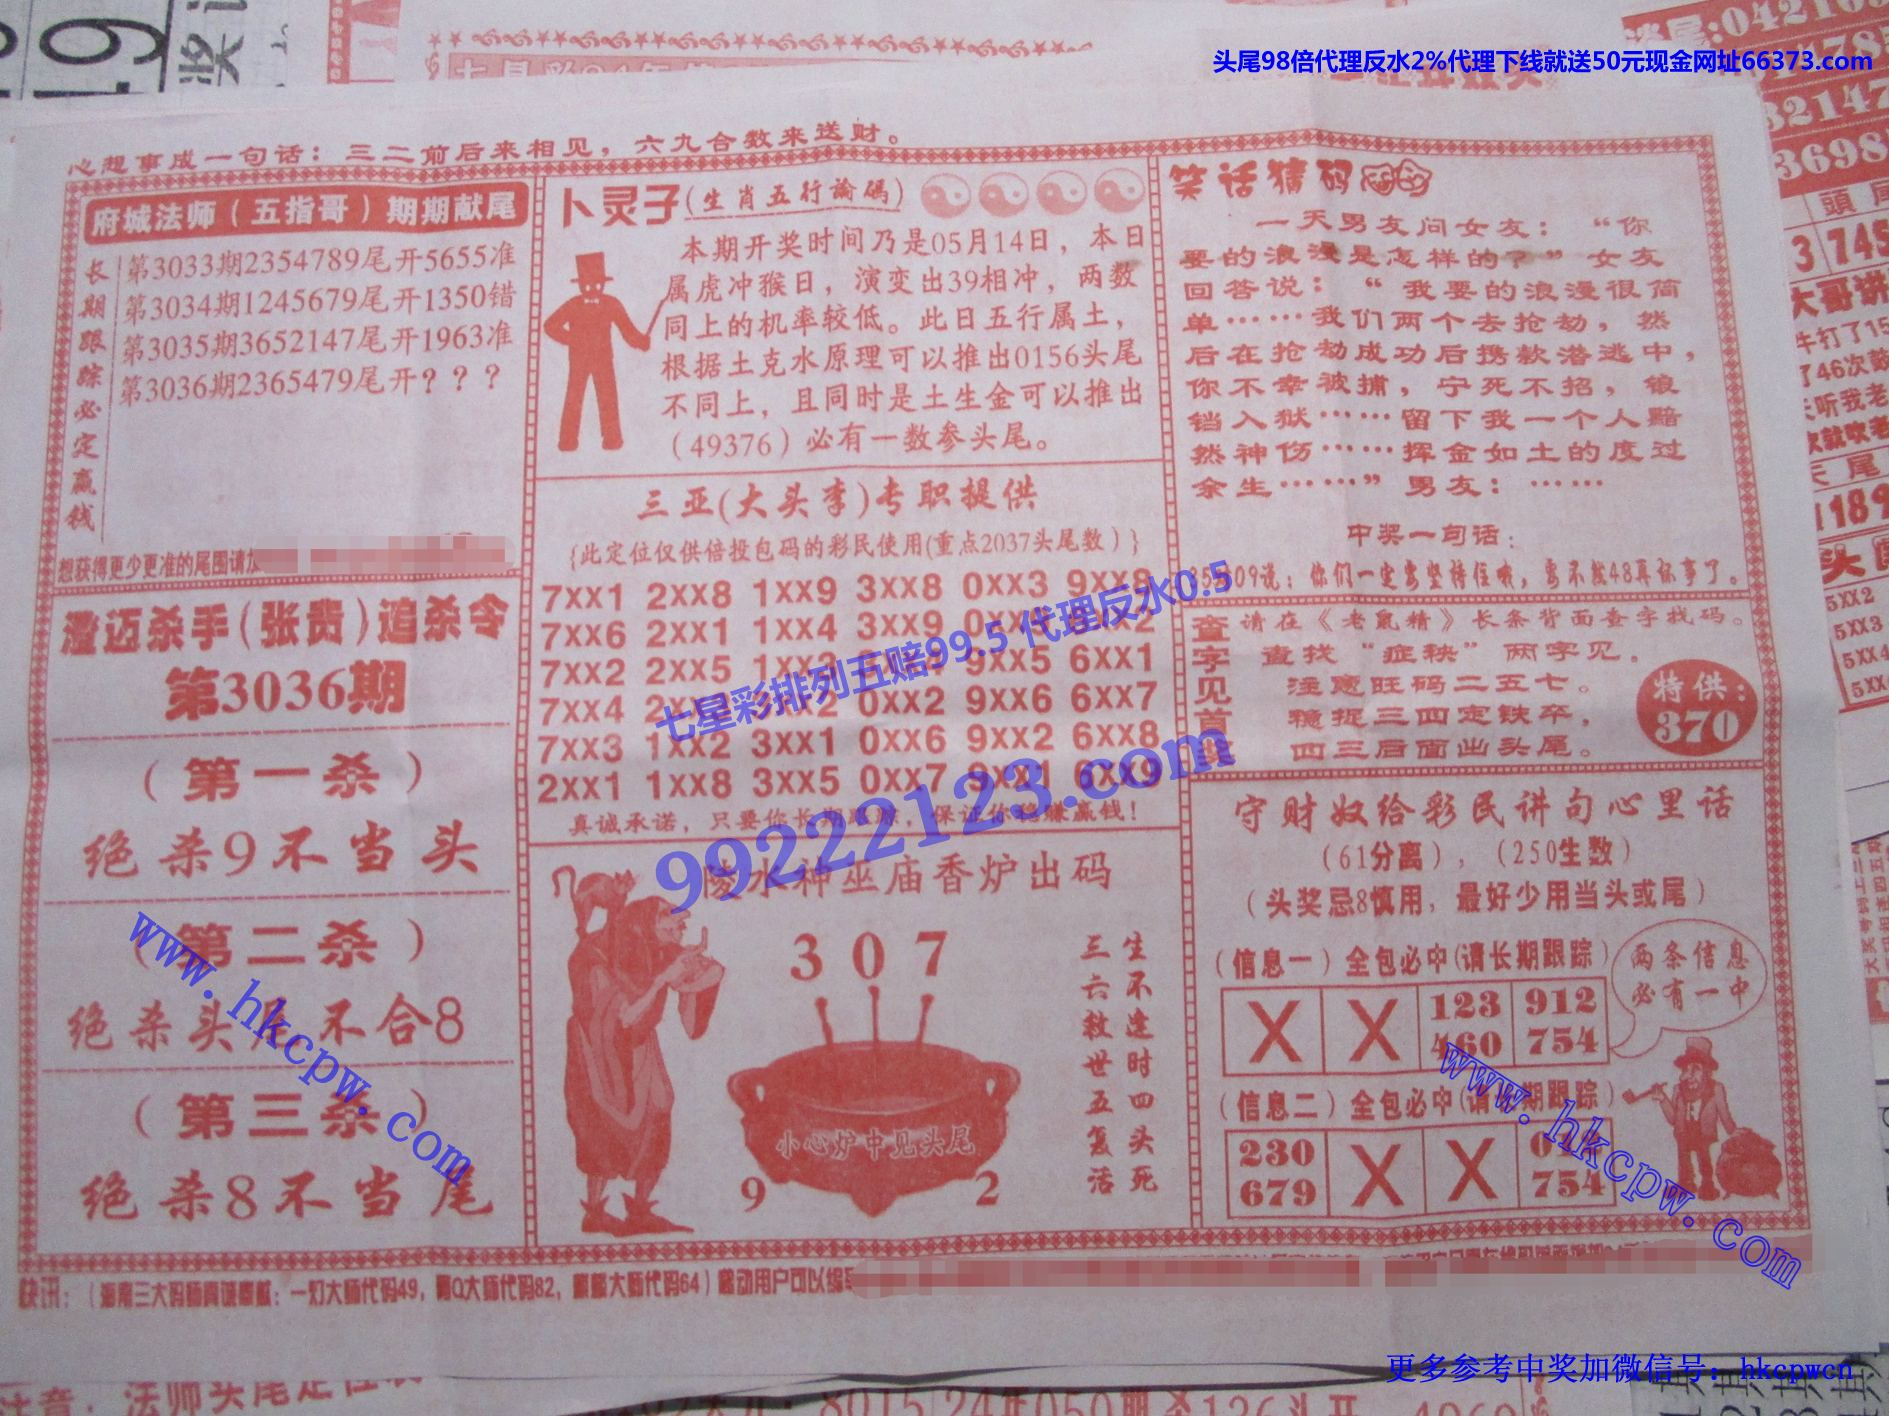 头尾98倍代理反水2%代理下线就送50元现金网址66373.com
心想事成一句话：三二前后来相见，六九合数来送财。
府城法师（五指哥）期期献尾
长期跟踪必定赢钱
第3033期2354789尾开5655准
第3034期1245679尾开1350错
第3035期3652147尾开1963准
第3036期2365479尾开？？？
想获得更少更准的尾围请加
澄迈杀手(张贵)追杀令
第3036期
（第一杀）
绝杀9不当头
（第二杀）
绝杀头尾不合8
（第三杀）
绝杀8不当尾
卜灵子(生肖五行論碼)
本期开奖时间乃是05月14日，本日
属虎冲猴日，演变出39相冲，两数
同上的机率较低。此日五行属土，
根据土克水原理可以推出0156头尾
不同上，且同时是土生金可以推出
（49376）必有一数参头尾。
三亚(大头李)专职提供
{此定位仅供倍投包码的彩民使用(重点2037头尾数）}
7XX1 2XX8 1XX9 3XX8 0XX3 9XX8
7XX6 2XX1 1XX4 3XX9
7XX2 2XX5 9XX5 6XX1
7XX4 0XX2 9XX6 6XX7
7XX3 1XX2 3XX1 0XX6 9XX2 6XX8
2XX1 1XX8 3XX5 0XX7 9XX1 6XX9
真诚承诺，只要你长期跟踪，保证你稳赚赢钱！
七星彩排列五赔99.5 代理反水0.5
99222123.com
陵水神巫庙香炉出码
307
小心炉中见头尾
9 2
生不逢时四头死
三六救世五复活
笑话猜码
一天男友问女友：“你
要的浪漫是怎样的？”女友
回答说：“我要的浪漫很简
单……我们两个去抢劫，然
后在抢劫成功后携款潜逃中，
你不幸被捕，宁死不招，锒
铛入狱……留下我一个人黯
然神伤……挥金如土的度过
余生……”男友：……
中奖一句话：
09说：你们一定要坚持住哦，要不拨48再坏事了。
查字见首奖
请在《老鼠精》长条背面查字找码。
查找“症秧”两字见。
注意旺码二五七。
稳捉三四定铁卒，
四三后面出头尾。
特供：
370
守财奴给彩民讲句心里话
（61分离），（250生数）
（头奖忌8慎用，最好少用当头或尾）
（信息一）全包必中(请长期跟踪)
X X 123 912
460 754
两条信息
必有一中
（信息二）全包必中(请长期跟踪)
230 X X
679 754
www.hkcpw.com
www.hkcpw.com
快讯：（海南三大码师真诚奉献：一灯大师代码49，
更多参考中奖加微信号：hkcpwcn